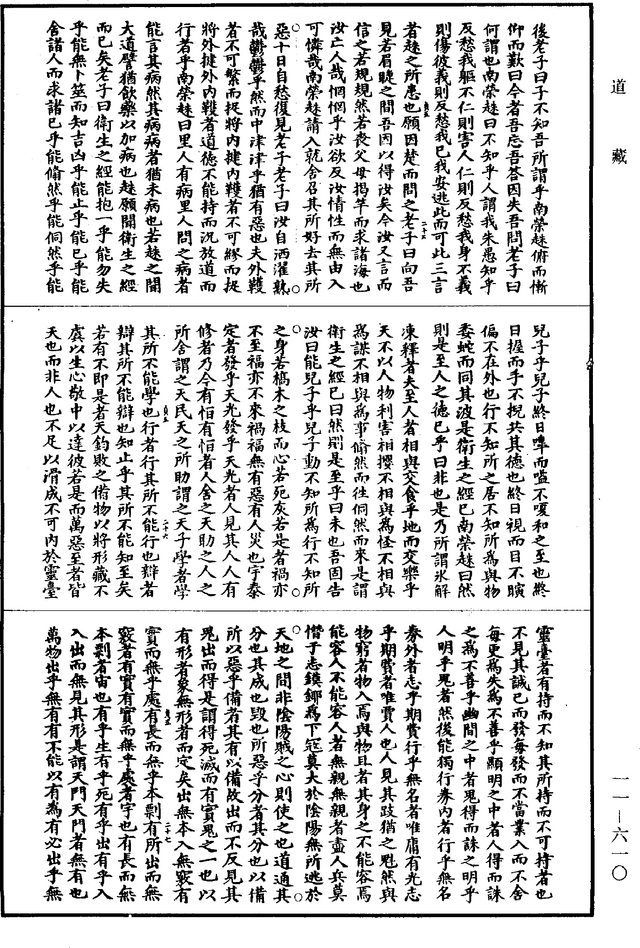 道藏
後老子曰子不知吾所謂乎南榮趎俯而慚
仰而歎曰今者吾忘吾荅因失吾問老子曰
何謂也南榮趎曰不知乎人謂我朱愚知乎
反愁我軀不仁則害人仁則反愁我身不義
則傷彼義則反愁我已我安逃此而可此三言
者趎之所患也願因楚而問之老子曰向吾
見若眉睫之間吾因以得汝矣今汝又言而
信之若規規然若喪父母揭竿而求諸海也
汝亡人哉惘惘乎汝欲反汝情性而無由入
可憐哉南榮趎請入就舍召其所好去其所
惡十日自愁復見老子老子曰汝自洒濯熟
哉鬱鬱乎然而中津津乎猶有惡也夫外韄
者不可繁而捉將內揵內韄者不可繆而捉
將外揵外內韄者道德不能持而況放道而
行者乎南榮趎曰里人有病里人問之病者
能言其病然其病病者猶未病也若趎之聞
大道譬猶飲藥以加病也趎願聞衛生之經
而已矣老子曰衛生之經能抱一乎能勿失
乎能無卜筮而知吉凶乎能止乎能已乎能
舍諸人而求諸己乎能翛然乎能侗然乎能
兒子乎兒子終日嘷而嗌不嗄和之至也終
日握而手不掜共其德也終日視而目不瞚
偏不在外也行不知所之居不知所為與物
委蛇而同其波是衛生之經已南榮趎曰然
則是至人之德已乎曰非也是乃所謂冰解
凍釋者夫至人者相與交食乎地而交樂乎
天不以人物利害相攖不相與為怪不相與
為謀不相與為事翛然而往侗然而來是謂
衛生之經已曰然則是至乎曰未也吾固告
汝曰能兒子乎兒子動不知所為行不知所
之身若槁木之枝而心若死灰若是者禍亦
不至福亦不來禍福無有惡有人災也宇泰
定者發乎天光發乎天光者人見其人人有
修者乃今有恒有恒者人舍之天助之人之
所舍謂之天民天之所助謂之天子學者學
其所不能學也行者行其所不能行也辯者
辯其所不能辯也知止乎其所不能知至矣
若有不即是者天鈞敗之備物以將形藏不
虞以生心敬中以達彼若是而萬惡至者皆
天也而非人也不足以滑成不可內於靈臺
靈臺者有持而不知其所持而不可持者也
不見其誠已而發每發而不當業入而不舍
每更為失為不善乎顯明之中者人得而誅
之為不善乎幽間之中者鬼得而誅之明乎
人明乎鬼者然後能獨行券內者行乎無名
券外者志乎期費行乎無名者唯庸有光志
乎期費者唯賈人也人見其跂猶之魁然與
物窮者物入焉與物且者其身之不能容焉
能容人不能容人者無親無親者盡人兵莫
憯于志鏌鋣為下寇莫大於陰陽無所逃於
天地之間非陰陽賊之心則使之也道通其
分也其成也毀也所惡乎分者其分也以備
所以惡乎備者其有以備故出而不反見其
鬼出而得是謂得死滅而有實鬼之一也以
有形者象無形者而定矣出無本入無竅有
實而無乎處有長而無乎本剽有所出而無
竅者有實有實而無乎處者宇也有長而無
本剽者宙也有乎生有乎死有乎出有乎入
入出而無見其形是謂天門天門者無有也
萬物出乎無有有不能以有為有必出乎無
一一－六一〇